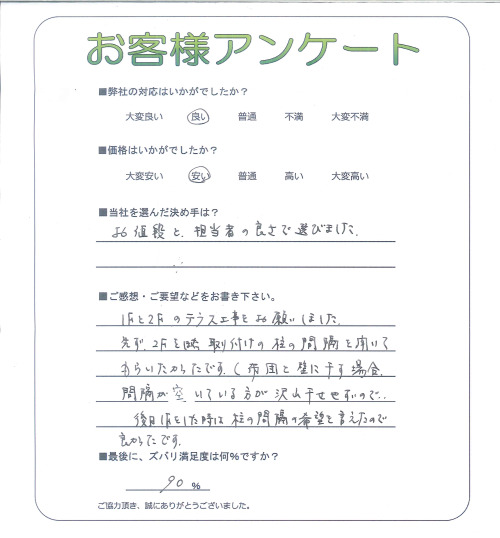 お客様アンケート
■弊社の対応はいかがでしたか？
大変良い 良い 普通 不満 大変不満
■価格はいかがでしたか？
大変安い 安い 普通 高い 大変高い
■当社を選んだ決め手は？
お値段と、担当者の良さで選びました。
■ご感想・ご要望などをお書き下さい。
1Fと2Fのテラス工事をお願いしました。
先ず、2Fを 取付けの柱の間隔を聞いて
もらいたかったです。(布団と 壁に干す場合、
間隔が空いている方が沢山干せますので‥
後日1Fをした時は柱の間隔の希望を言えたので
良かったです。
■最後に、ズバリ満足度は何%ですか？
90 %
ご協力頂き、誠にありがとうございました。